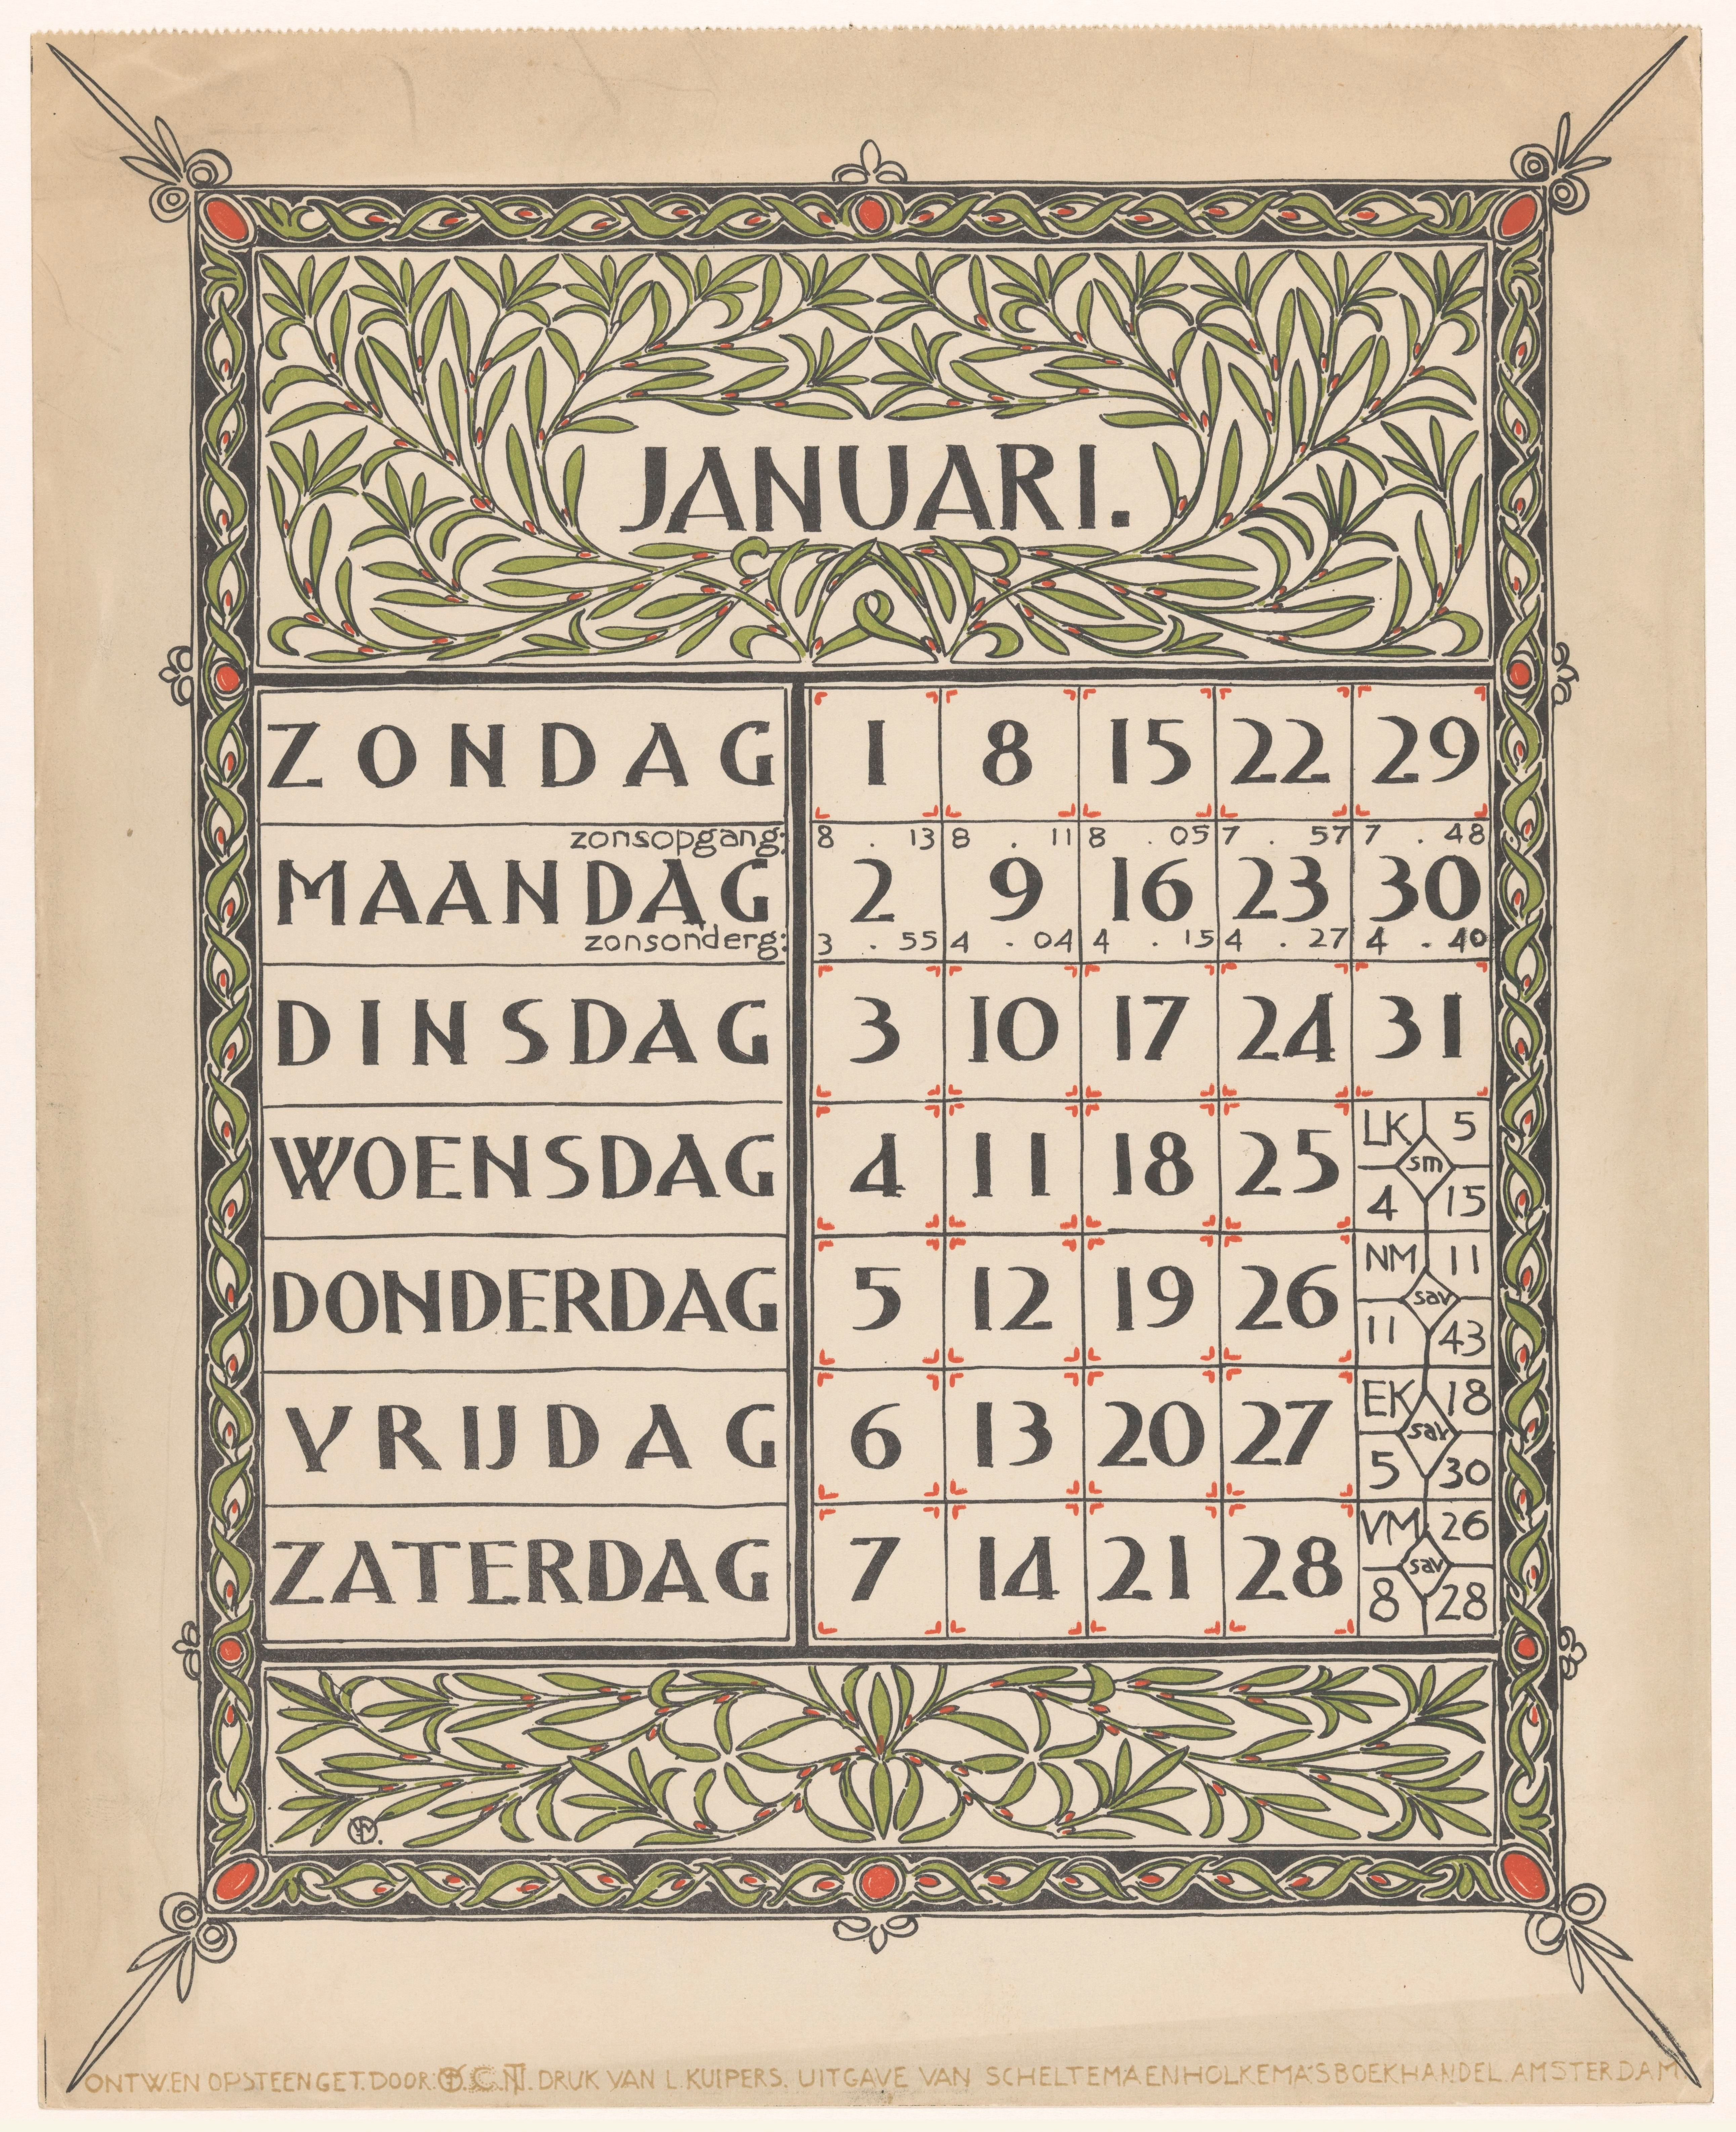 JANUARI.
ZONDAG 1 8 15 22 29
zonsopgang: 8 . 13 8 . 11 8 . 05 7 . 57 7 . 48
MAANDAG 2 9 16 23 30
zonsonderg: 3 . 55 4 . 04 4 . 15 4 . 27 4 . 40
DINSDAG 3 10 17 24 31
WOENSDAG 4 11 18 25
LK 5
sm
4 15
DONDERDAG 5 12 19 26
NM 11
sav
11 43
VRIJDAG 6 13 20 27
EK 18
sav
5 30
ZATERDAG 7 14 21 28
VM 26
sav
8 28
ONTW. EN OPSTEENGET. DOOR: DRUK VAN L. KUIPERS. UITGAVE VAN SCHELTEMA EN HOLKEMA'S BOEKHANDEL. AMSTERDAM.